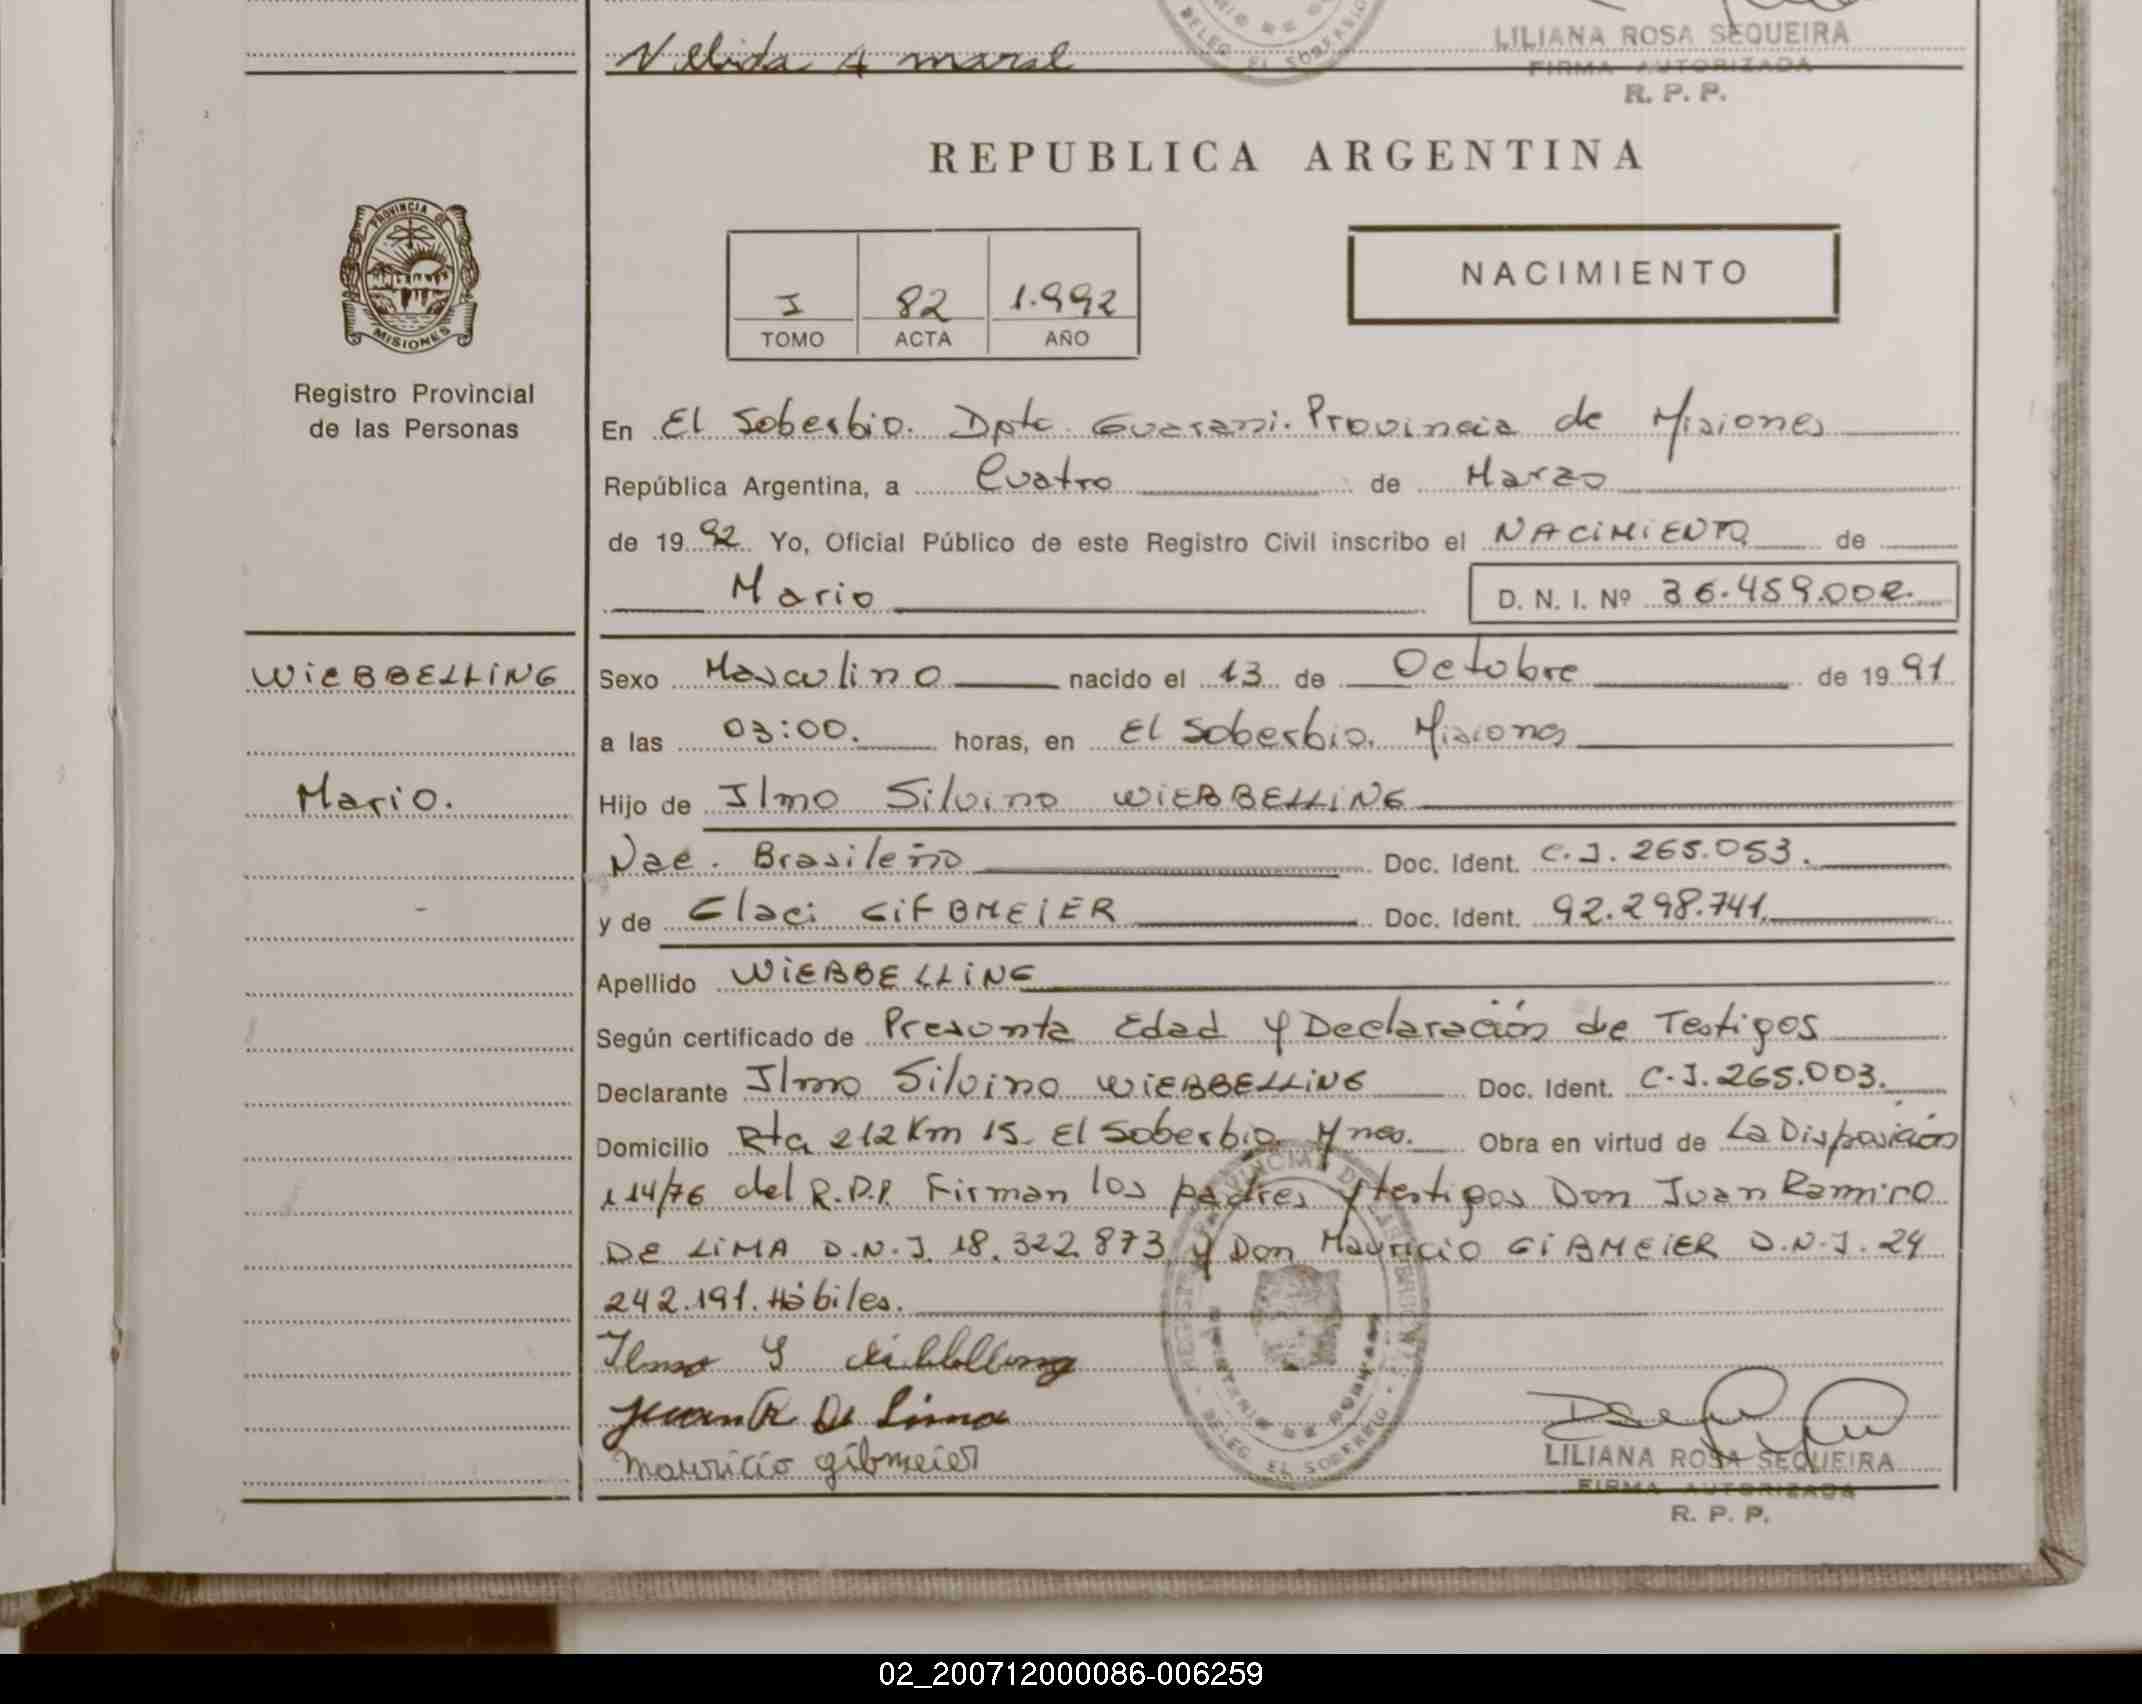 LILIANA ROSA SEQUEIRA
FIRMA AUTORIZADA
R. P. P.
REPUBLICA ARGENTINA
PROVINCIA DE
MISIONES
Registro Provincial
de las Personas
I 82 1.992
TOMO ACTA AÑO
NACIMIENTO
En El Soberbio. Dpto Guarani. Provincia de Misiones
República Argentina, a Cuatro de Marzo
de 1992 Yo, Oficial Público de este Registro Civil inscribo el NACIMIENTO de
Mario D. N. I. Nº 36.459.002.
WIEBBELLING
Mario.
Sexo Masculino nacido el 13 de Octubre de 1991
a las 03:00. horas, en El Soberbio. Misiones
Hijo de Ilmo Silvino WIEBBELLING
Nac. Brasileño Doc. Ident. C.I. 265.053.
y de Claci GIBMEIER Doc. Ident. 92.298.741.
Apellido WIEBBELLING
Según certificado de Presunta Edad y Declaración de Testigos
Declarante Ilmo Silvino WIEBBELLING Doc. Ident. C.I. 265.003.
Domicilio Rta 212 Km 15 El Soberbio Mnes. Obra en virtud de La Disposición
114/76 del R.P.P. Firman los padres y testigos Don Juan Ramiro
DE LIMA D.N.I. 18.322.873 y Don Mauricio GIBMEIER D.N.I. 24
242.191. Hábiles.
Juan R De Lima
Mauricio gibmeier
DELEG. EL SOBERBIO
LILIANA ROSA SEQUEIRA
FIRMA AUTORIZADA
R. P. P.
02_200712000086-006259